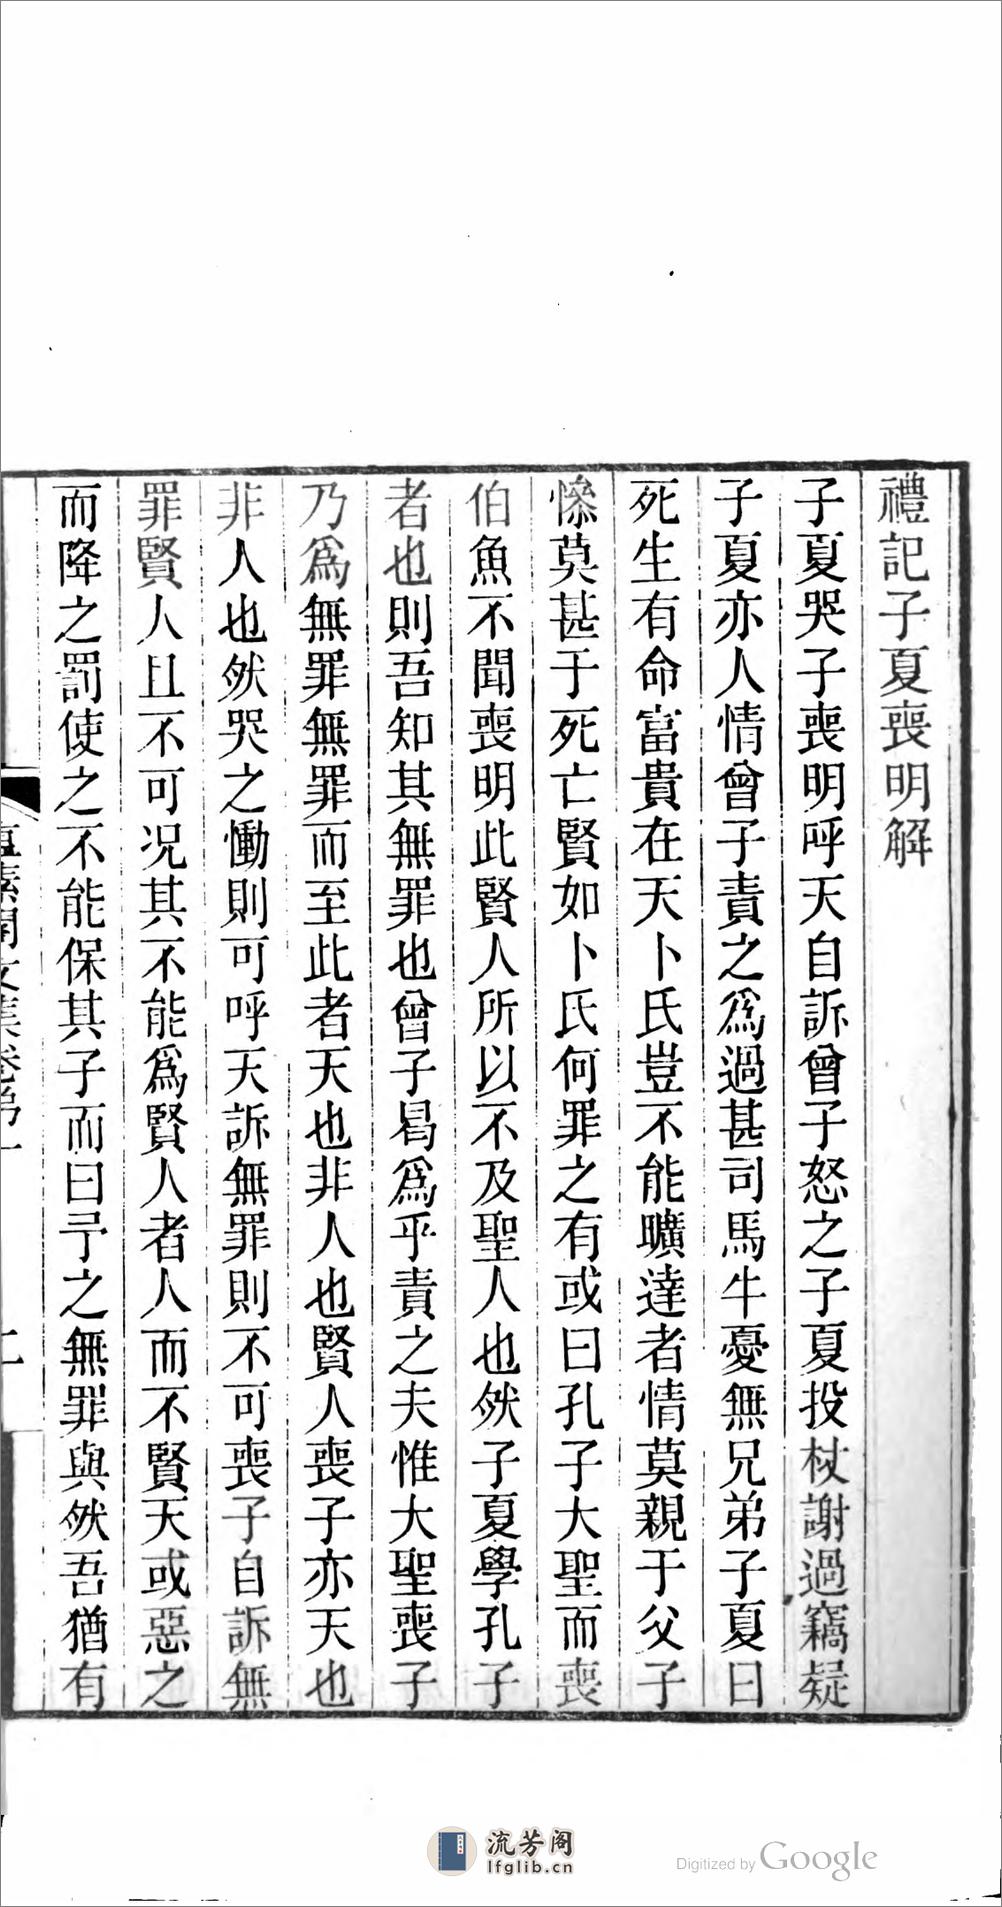 禮記子夏喪明解
子夏哭子喪明呼天自訴曾子怒之子夏投杖謝過竊疑
子夏亦人情曾子責之爲過甚司馬牛憂無兄弟子夏曰
死生有命富貴在天卜氏豈不能曠達者情莫親于父子
慘莫甚于死亡賢如卜氏何罪之有或曰孔子大聖而喪
伯魚不聞喪明此賢人所以不及聖人也然子夏學孔子
者也則吾知其無罪也曾子曷爲乎責之夫惟大聖喪子
乃爲無罪無罪而至此者天也非人也賢人喪子亦天也
非人也然哭之慟則可呼天訴無罪則不可喪子自訴無
罪賢人且不可况其不能爲賢人者人而不賢天或惡之
而降之罰使之不能保其子而曰予之無罪與然吾猶有
素閣文集卷第一
二
流芳阁
lfglib.cn
Digitized by Google